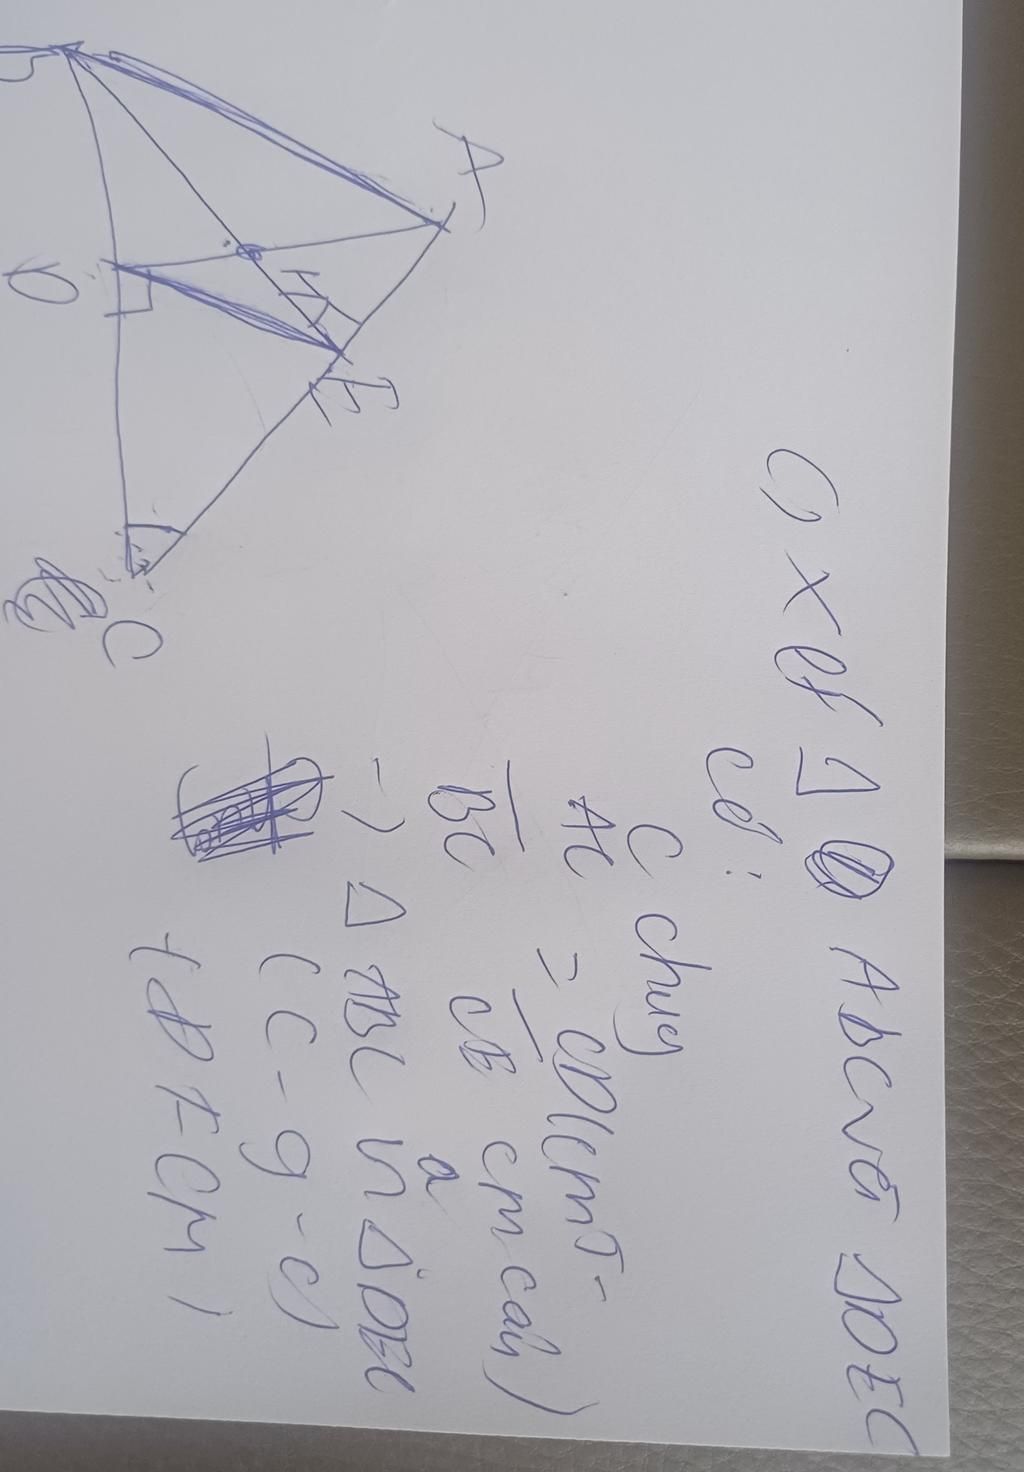 A
B
H
E
D
C
C) xét Δ ABC và ΔDEC
có:
C chung
AC = CD (cmt)
BC CB cm câu a)
-) Δ ABC ∽ Δ DEC
(C-g-c)
(ĐPCM)